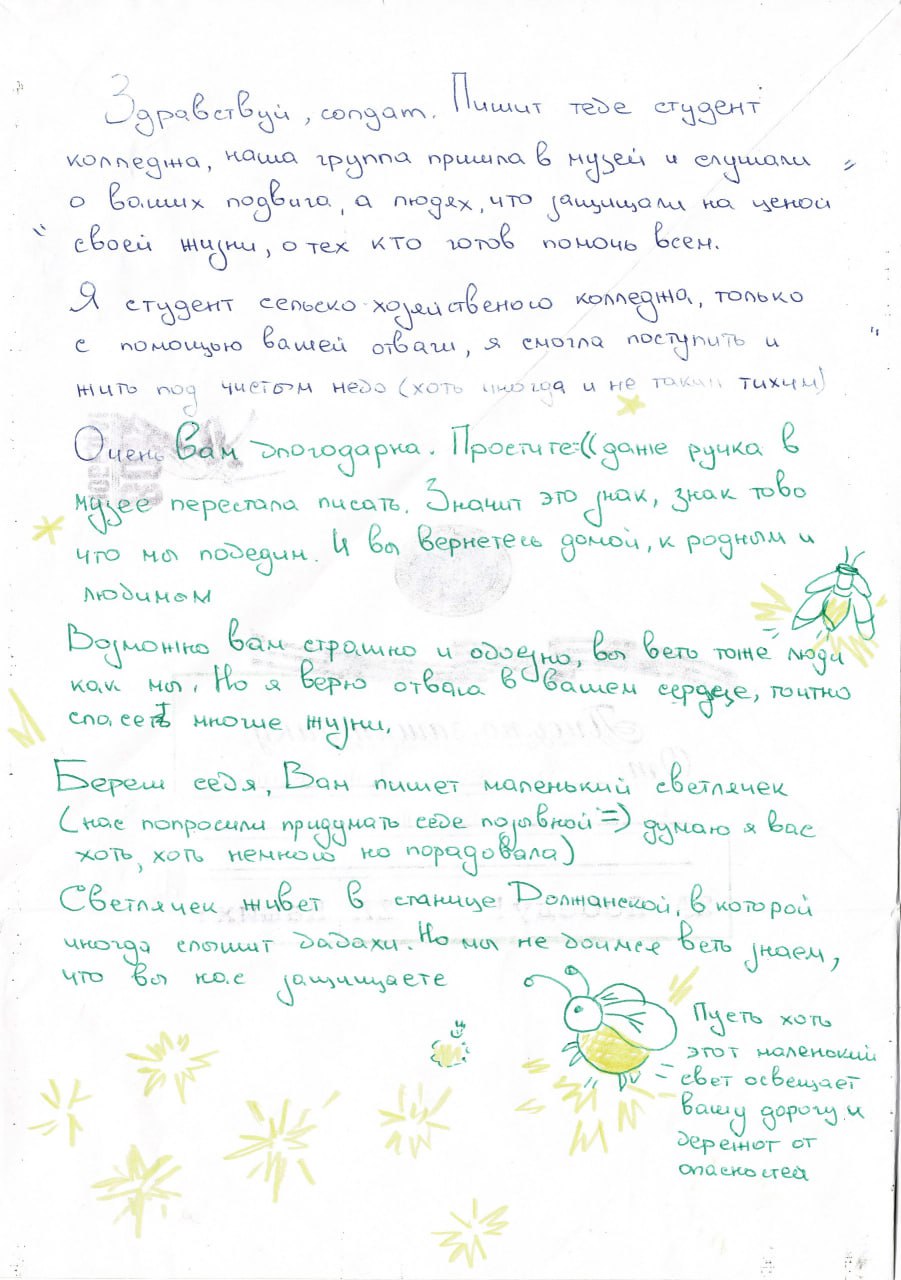 Здравствуй, солдат. Пишит тебе студент
колледжа, наша группа пришла в музей и слушали
о ваших подвига, а людях, что защищали на ценой
своей жизни, о тех кто готов помочь всем.
Я студент сельско-хозяйственого колледжа, только
с помощью вашей отваги, я смогла поступить и
жить под чистым небо (хоть иногда и не таким тихим)
Очень Вам блогодарна. Простите=(( даже ручка в
музее перестала писать. Значит это знак, знак тово
что мы победим. И вы вернетесь домой, к родным и
любимым
Возможно вам страшно и обоезно, вы веть тоже люди
как мы. Но я верю отвага в вашем сердеце, точтно
спасеть многие жизни.
Береш себя, Вам пишет маленький светлячек
(нас попросили придумать себе позывной =) думаю я вас
хоть, хоть немного но порадовала)
Светлячек живет в станице Должанской, в которой
иногда слышит бабахи. Но мы не боимся веть знаем,
что вы нас защищаете
Пусеть хоть
этот маленький
свет освещает
вашу дорогу и
бережот от
опасностей